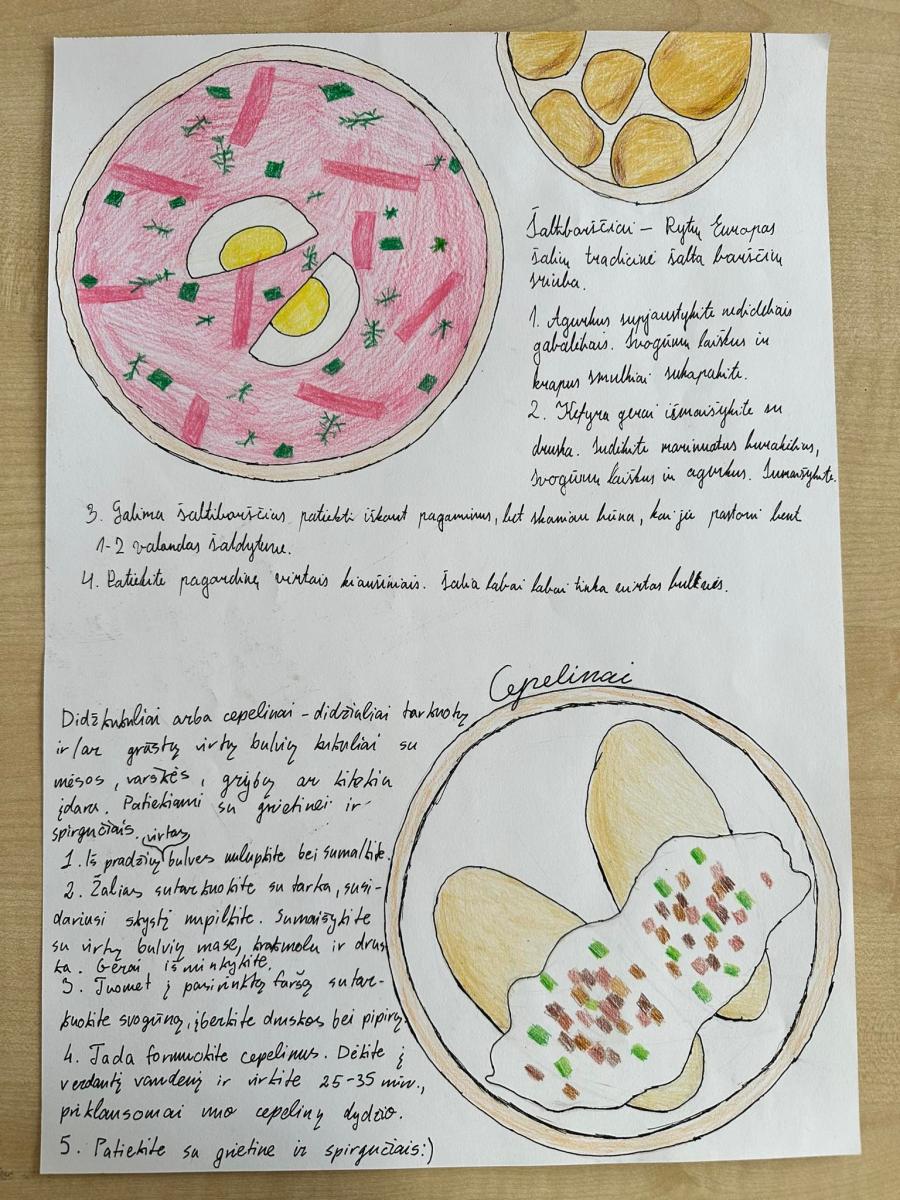 Šaltibarščiai – Rytų Europos
šalių tradicinė šalta barščių
sriuba.
1. Agurkus supjaustykite nedideliais
gabalėliais. Svogūnų laiškus ir
krapus smulkiai sukapokite.
2. Kefyrą gerai išmaišykite su
druska. Sudėkite marinuotus burokėlius,
svogūnų laiškus ir agurkus. Sumaišykite.
3. Galima šaltibarščius patiekti iškart pagaminus, bet skaniau būna, kai jie pastovi bent
1-2 valandas šaldytuve.
4. Patiekite pagardinę virtais kiaušiniais. Šalia labai labai tinka virtos bulvės.
Cepelinai
Didžkukuliai arba cepelinai – didžiuliai tarkuotų
ir/ar grūstų virtų bulvių kukuliai su
mėsos, varškės, grybų ar kitokiu
įdaru. Patiekiami su grietinei ir
spirgučiais.
1. Iš pradžių virtas bulves nulupkite bei sumalkite.
2. Žalias sutarkuokite su tarka, susi-
dariusį skystį nupilkite. Sumaišykite
su virtų bulvių mase, krakmolu ir drus
ka. Gerai išminkykite.
3. Tuomet į pasirinktą faršą sutar-
kuokite svogūną, įberkite druskos bei pipirų.
4. Tada formuokite cepelinus. Dėkite į
verdantį vandenį ir virkite 25-35 min.,
priklausomai nuo cepelinų dydžio.
5. Patiekite su grietine ir spirgučiais:)